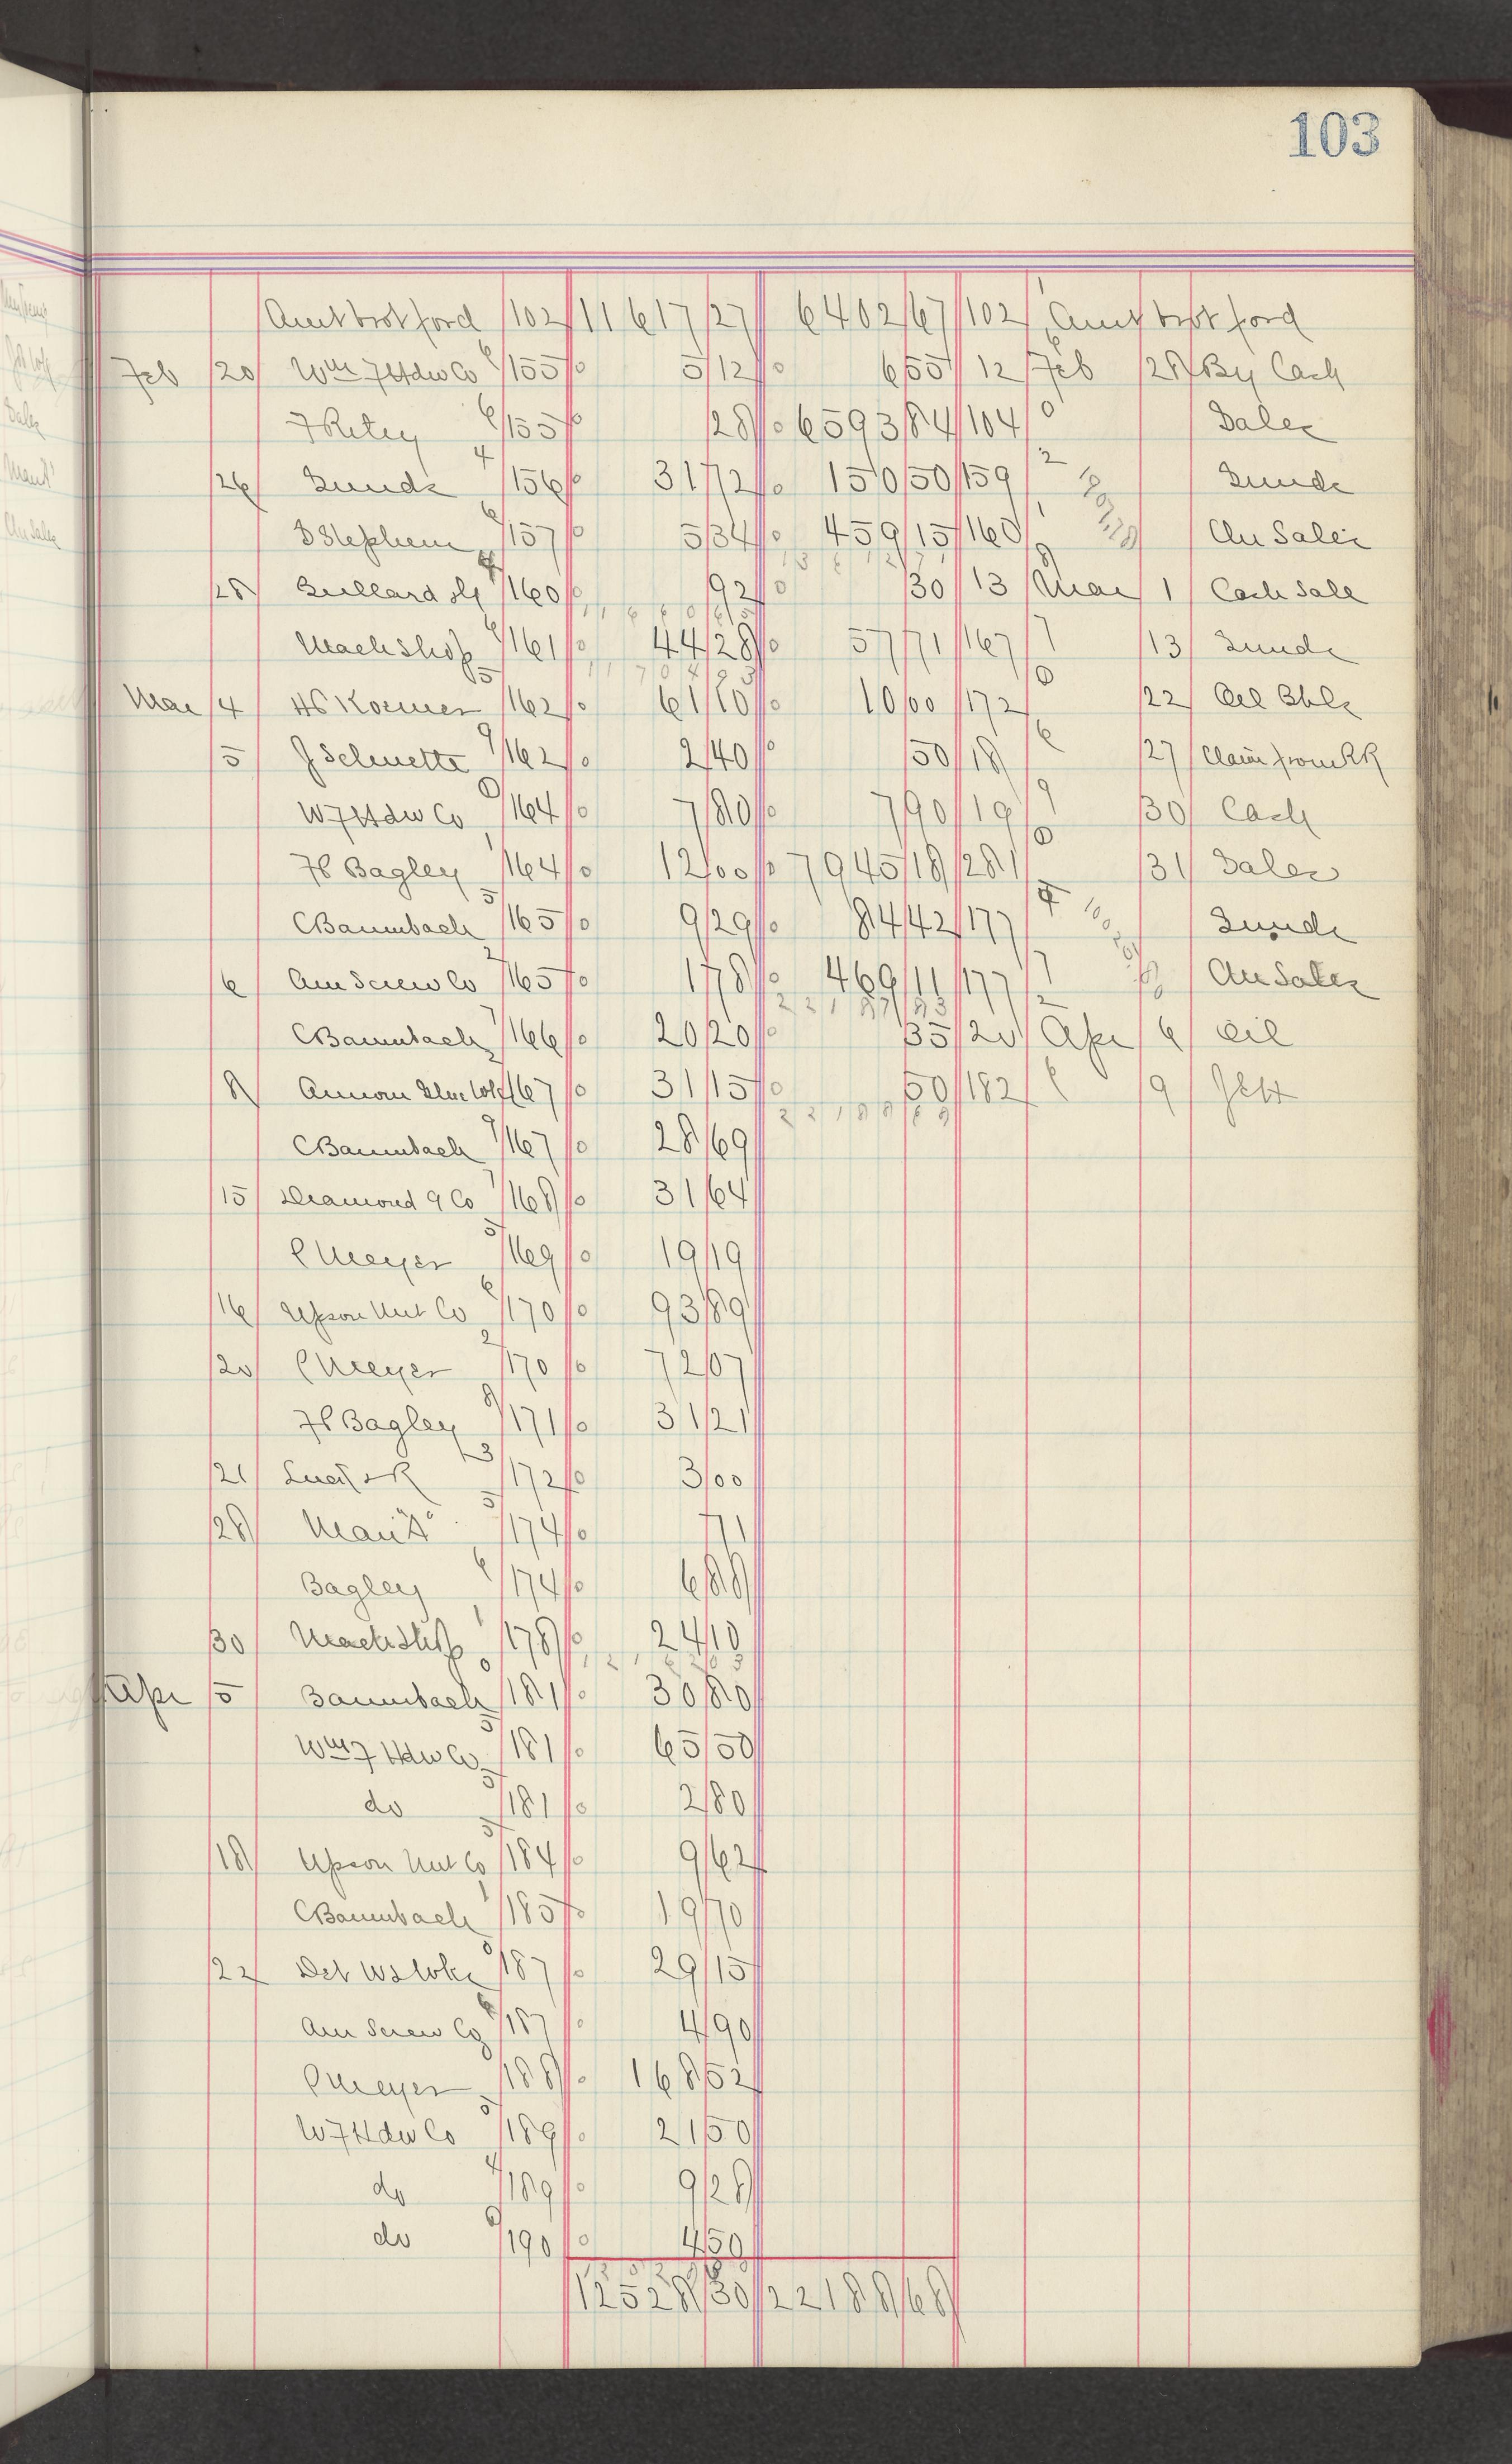 103
Amt brot ford 102 11617 27 6402 67 102 Amt brot ford
Feb 20 Wm F Hdw Co 155 5 12 655 12 Feb 28 By Cash
155 28 6593 84 104 Sales
26 Sunds 156 31 72 150 50 159 Sunds
157 5 34 459 15 160 Sales
28 Bullard 160 92 30 13 Mar 1 Cash Sale
Mach Shop 161 44 28 57 71 167 13 Sunds
Mar 4 162 61 10 10 00 172 22 Oil Bbls
5 J Schuette 162 2 40 50 18 27 Claim from RR
W F Hdw Co 164 7 80 7 90 19 30 Cash
Bagley 164 12 00 7945 18 281 31 Sales
C Baumbach 165 9 29 84 42 177 Sunds
6 Am Screw Co 165 1 78 469 11 177 Sales
C Baumbach 166 20 20 35 20 Apr 6 Oil
8 167 31 15 50 182 9
C Baumbach 167 28 69
15 Diamond Co 168 31 64
C Meyer 169 19 19
16 Upson Nut Co 170 93 89
20 C Meyer 170 72 07
Bagley 171 31 21
21 172 3 00
28 174 71
Bagley 174 6 88
30 Mach Shop 178 24 10
Apr 5 Baumbach 181 30 80
Wm F Hdw Co 181 65 50
do 181 2 80
18 Upson Nut Co 184 9 62
C Baumbach 185 19 70
22 187 29 15
Am Screw Co 187 4 90
C Meyer 188 168 52
W F Hdw Co 189 21 50
do 189 9 28
do 190 4 50
12528 30 22188 68